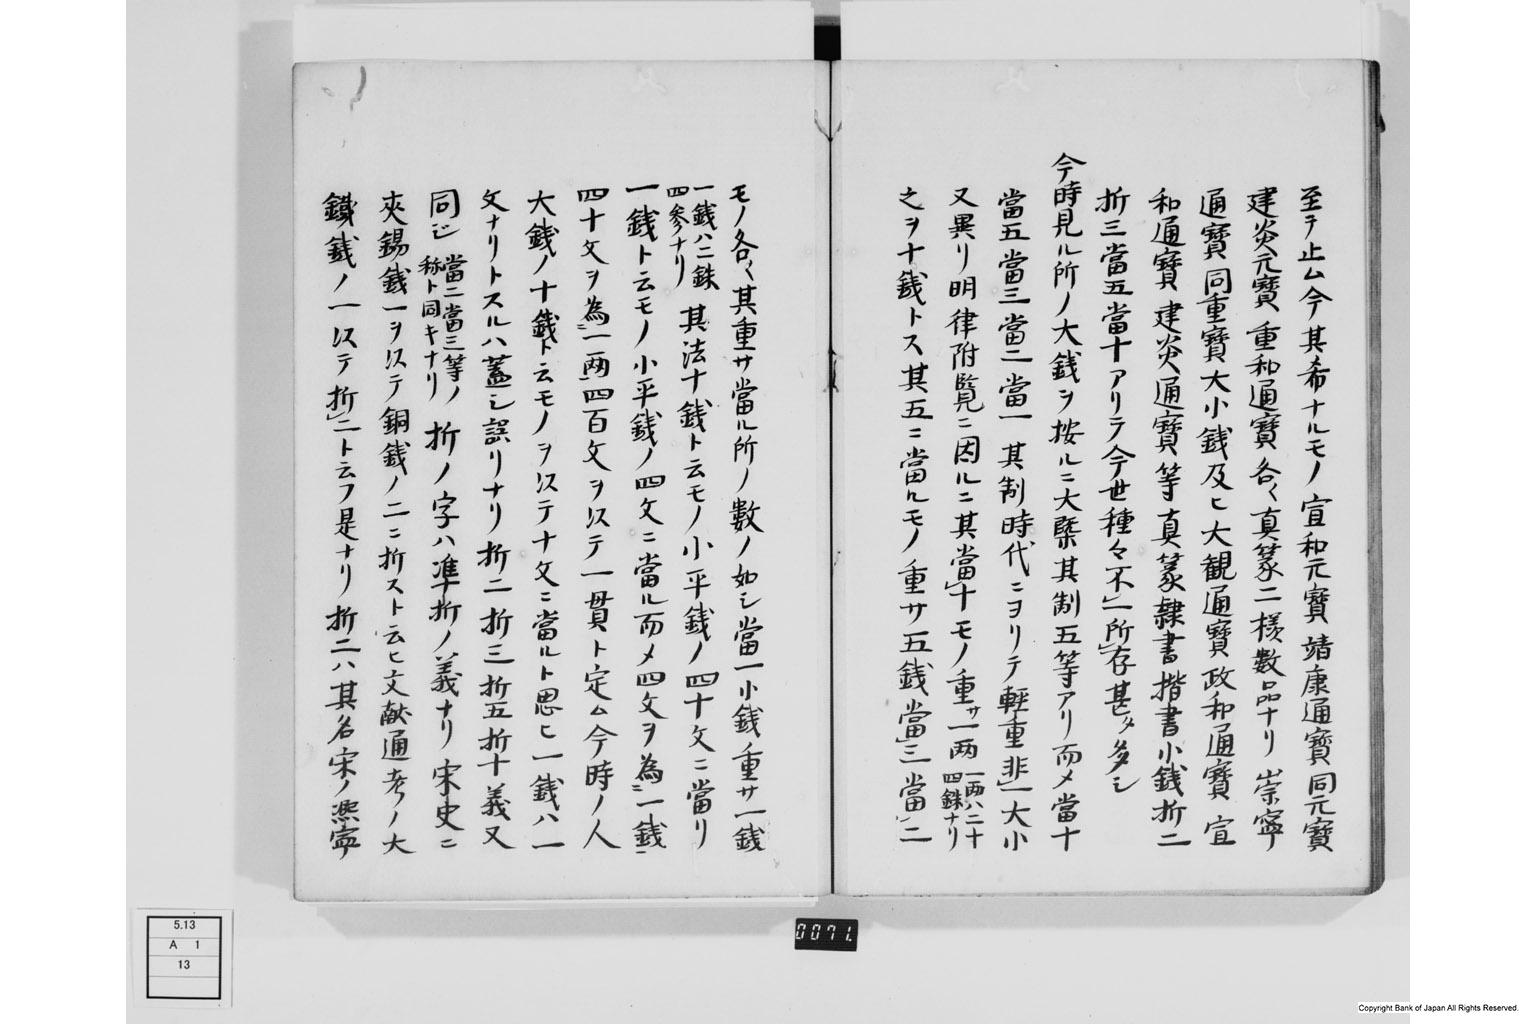 至テ止ム今其希ナルモノ宣和元寶靖康通寶同元寶
建炎元寶重和通寶各〻真篆二様数品ナリ崇寧
通寶同重寶大小銭及ヒ大観通寶政和通寶宣
和通寶建炎通寶等真篆隷書揩書小銭折二
折三當五當十アリテ今世種々不一所存甚タ多シ
今時見ル所ノ大銭ヲ按ルニ大槩其制五等アリ而メ當十
當五當三當二當一其制時代ニヨリテ輕重非一大小
又異リ明律附覧ニ因ルニ其當十モノ重サ一两一两ハ二十四銖ナリ
之ヲ十銭トス其五ニ當ルモノ重サ五銭當三當二
モノ各〻其重サ當ル所ノ數ノ如シ當一小銭重サ一銭
一銭ハ二銖四参ナリ其法十銭ト云モノ小平銭ノ四十文ニ當リ
一銭ト云モノ小平銭ノ四文ニ當ル而メ四文ヲ為一銭
四十文ヲ為一两四百文ヲ以テ一貫ト定ム今時ノ人
大銭ノ十銭ト云モノヲ以テ十文ニ當ルト思ヒ一銭ハ一
文ナリトスルハ蓋シ誤リナリ折二折三折五折十義又
同シ當二當三等ノ称ト同キナリ折ノ字ハ準折ノ義ナリ宋史ニ
夾錫銭一ヲ以テ銅銭ノ二ニ折スト云ヒ文献通考ノ大
鐵銭ノ一以テ折二ト云フ是ナリ折二ハ其名宋ノ熈寧
5.13
A 1
13
0071.
Copyright Bank of Japan All Rights Reserved.